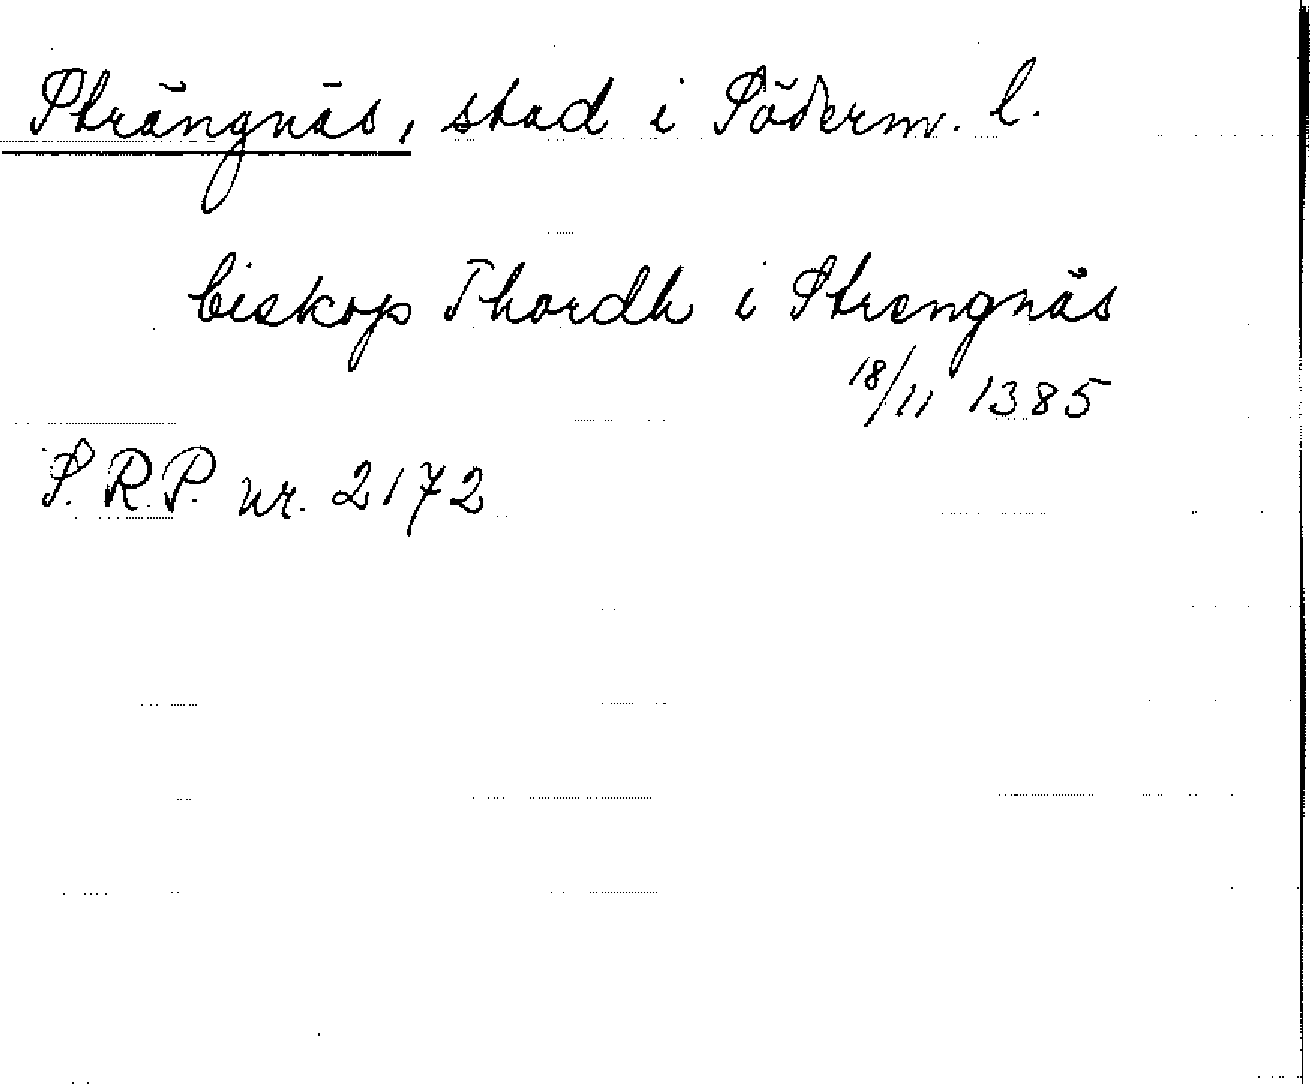 Strängnäs, stad i Söderm. l.
biskop Thordh i Strengnäs
18/11 1385
S.R.P. nr. 2172